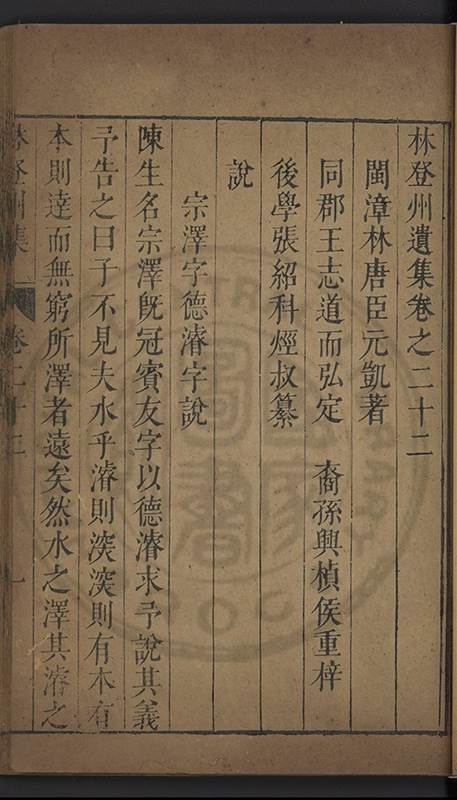 林登州遺集卷之二十二
閩漳林唐臣元凱著
同郡王志道而弘定　裔孫興楨侯重梓
後學張紹科煙叔纂
說
宗澤字德濬字說
陳生名宗澤旣冠賓友字以德濬求予說其義
予告之曰子不見夫水乎濬則湥湥則有本有
本則達而無窮所澤者遠矣然水之澤其濬之
林登州集　卷二十二　一